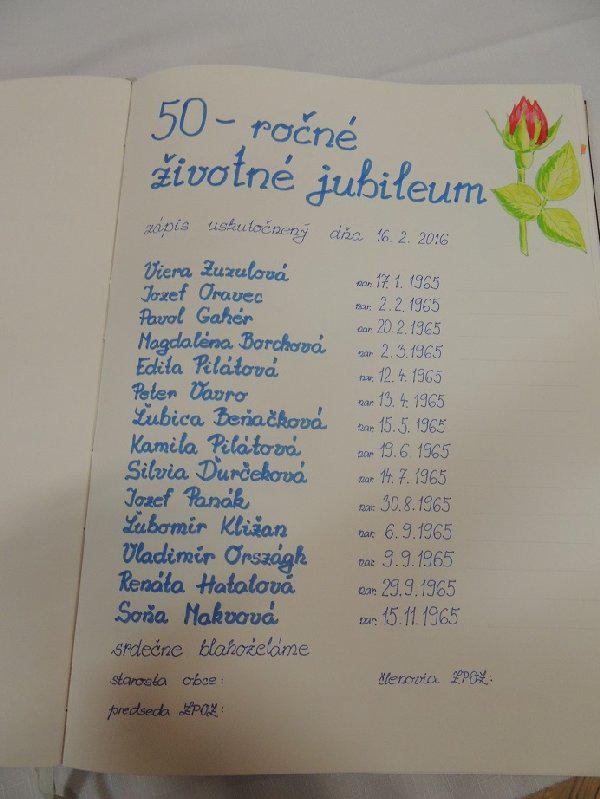 50 - ročné
životné jubileum
zápis uskutočnený dňa 16. 2. 2016
Viera Zuzulová nar. 17. 1. 1965
Jozef Oravec nar. 2. 2. 1965
Pavol Gahér nar. 20. 2. 1965
Magdaléna Borchová nar. 2. 3. 1965
Edita Pilátová nar. 12. 4. 1965
Peter Vavro nar. 13. 4. 1965
Ľubica Beňačková nar. 15. 5. 1965
Kamila Pilátová nar. 19. 6. 1965
Silvia Ďurčeková nar. 14. 7. 1965
Jozef Panák nar. 30. 8. 1965
Ľubomír Kližan nar. 6. 9. 1965
Vladimír Országh nar. 9. 9. 1965
Renáta Hatalová nar. 29. 9. 1965
Soňa Makvová nar. 15. 11. 1965
srdečne blahoželáme
starosta obce: členovia ZPOZ:
predseda ZPOZ: